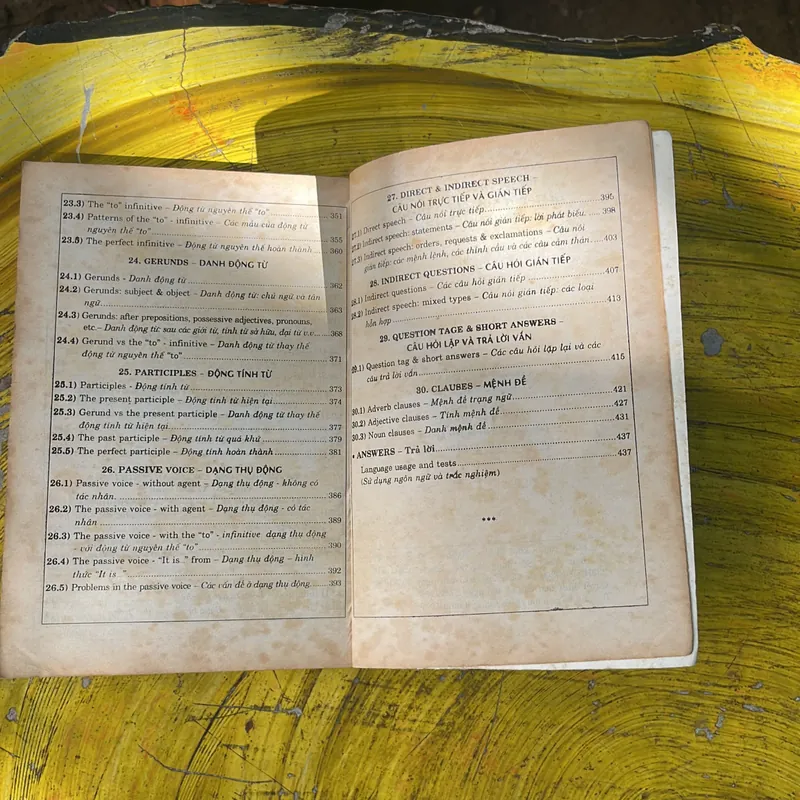 23.3) The "to" infinitive – Động từ nguyên thể "to"
............ 351
23.4) Patterns of the "to" - infinitive – Các mẫu của động từ
nguyên thể "to"............ 355
23.5) The perfect infinitive – Động từ nguyên thể hoàn thành..... 360
24. GERUNDS – DANH ĐỘNG TỪ
24.1) Gerunds - Danh động từ ............ 362
24.2) Gerunds: subject & object – Danh động từ: chủ ngữ và tân
ngữ............ 363
24.3) Gerunds: after prepositions, possessive adjectives, pronouns,
etc.– Danh động từ sau các giới từ, tính từ sở hữu, đại từ v.v... 368
24.4) Gerund vs the "to" - infinitive – Danh động từ thay thế
động từ nguyên thể "to"............ 371
25. PARTICIPLES – ĐỘNG TÍNH TỪ
25.1) Participles - Động tính từ ............ 373
25.2) The present participle – Động tính từ hiện tại............ 374
25.3) Gerund vs the present participle – Danh động từ thay thế
động tính từ hiện tại............ 377
25.4) The past participle – Động tính từ quá khứ ............ 379
25.5) The perfect participle – Động tính hoàn thành............ 381
26. PASSIVE VOICE – DẠNG THỤ ĐỘNG
26.1) Passive voice - without agent – Dạng thụ động - không có
tác nhân............ 386
26.2) The passive voice - with agent – Dạng thụ động - có tác
nhân ............ 389
26.3) The passive voice - with the "to" - infinitive dạng thụ động
– với động từ nguyên thể "to"............ 390
26.4) The passive voice - "It is.." from – Dạng thụ động – hình
thức "It is .."............ 392
26.5) Problems in the passive voice – Các vấn đề ở dạng thụ động........ 393
27. DIRECT & INDIRECT SPEECH –
CÂU NÓI TRỰC TIẾP VÀ GIÁN TIẾP
27.1) Direct speech – Câu nói trực tiếp............ 395
27.2) Indirect speech: statements – Câu nói gián tiếp: lời phát biểu. ..... 398
27.3) Indirect speech: orders, requests & exclamations – Câu nói
gián tiếp: các mệnh lệnh, các thỉnh cầu và các câu cảm thán.... 403
28. INDIRECT QUESTIONS – CÂU HỎI GIÁN TIẾP
28.1) Indirect questions – Các câu hỏi gián tiếp ............ 407
28.2) Indirect speech: mixed types – Câu nói gián tiếp: các loại
hỗn hợp............ 413
29. QUESTION TAGE & SHORT ANSWERS –
CÂU HỎI LẶP VÀ TRẢ LỜI VẮN
29.1) Question tag & short answers – Các câu hỏi lặp lại và các
câu trả lời vắn............ 415
30. CLAUSES – MỆNH ĐỀ
30.1) Adverb clauses – Mệnh đề trạng ngữ............ 421
30.2) Adjective clauses – Tính mệnh đề............ 427
30.3) Noun clauses – Danh mệnh đề ............ 431
• ANSWERS – Trả lời............ 437
Language usage and tests............ 437
(Sử dụng ngôn ngữ và trắc nghiệm)
***